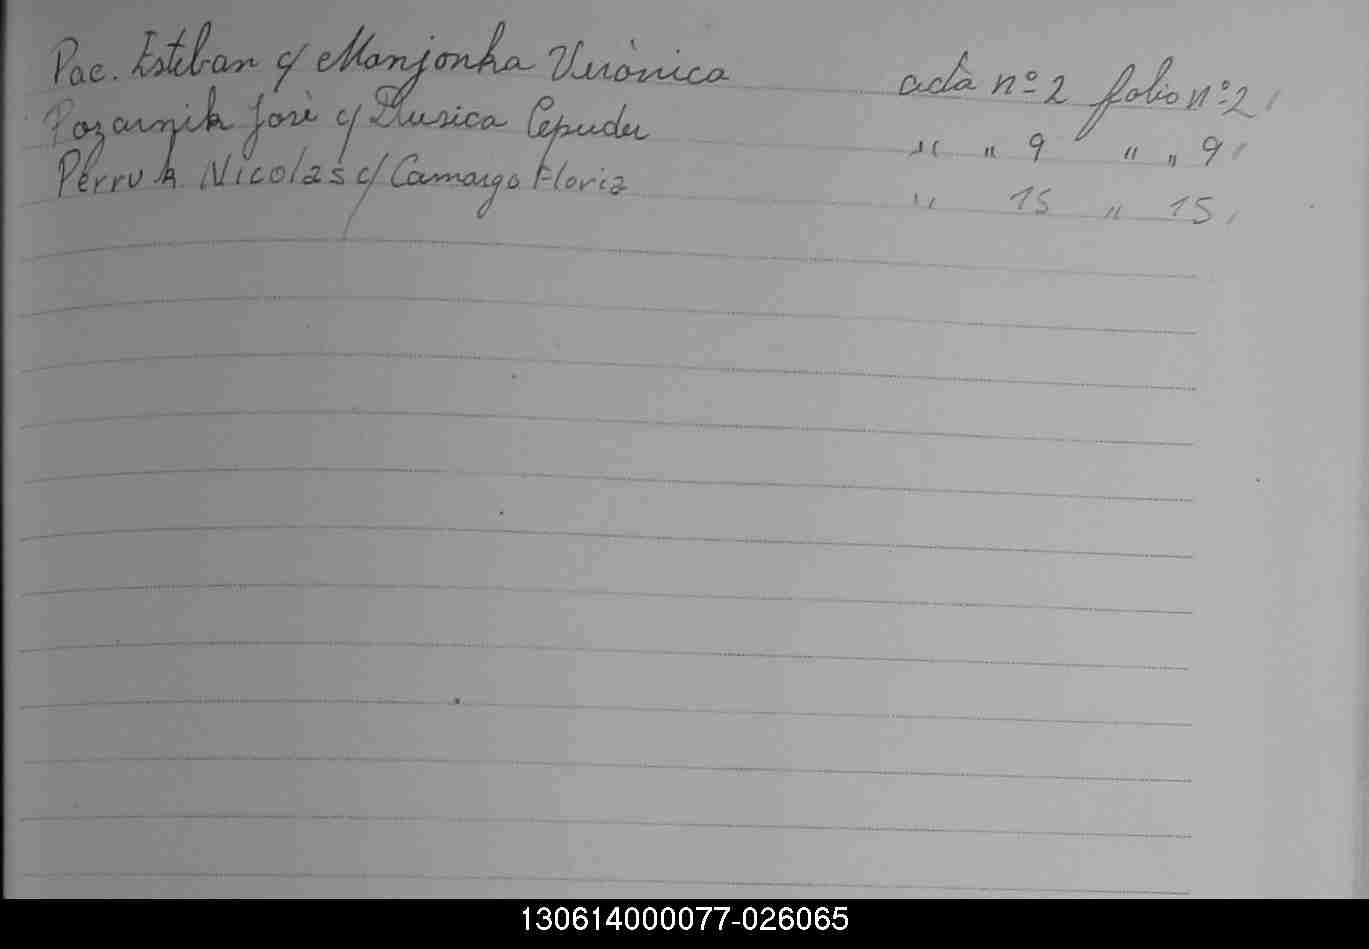 Pac. Esteban c/ Manjonka Verónica acta nº 2 folio nº 2
Pozarnik José c/ Cepuder " " 9 " " 9
Perruk Nicolás c/ Camargo Floria " 15 " 15
130614000077-026065